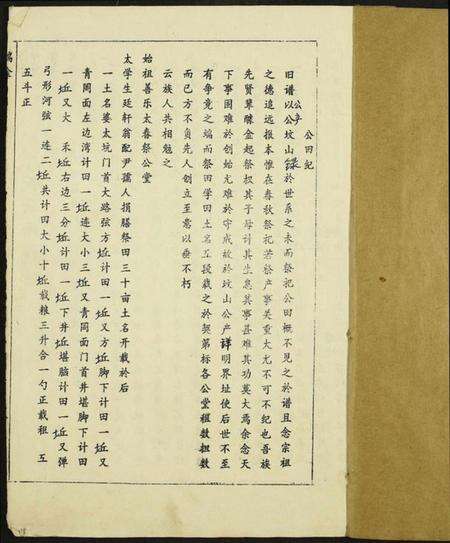 公田紀
旧谱以公坟山公产録於世系之末而祭祀公田概不見之於谱且念宗祖
之德追远报本惟在春秋祭祀若祭产事关重大尤不可不纪也吾族
先贤辈醵金起祭权其子母计其生息其事甚难其功莫大焉余念天
下事固难於创始尤难於守成故於坟山公产詳明界址使后世不至
有争竞之端而祭田学田土名五段载之於契第标各公堂租数担数
而已方不负先人创立至意以垂不朽
云族人共相勉之
始祖善乐太春祭公堂
太学生廷轩翁配尹孺人捐膳祭田三十亩土名开载於后
一土名婆太坑门首大路弦方坵计田一坵又方坵脚下计田一坵又
青岡面左边湾计田一坵連大小三坵又青岡面门首井堪脚下计田
一坵又大禾坵右边三分坵计田一坵下井坵堪脑计田一坵又弹
弓形河弦一連二坵共计田大小十坵载粮三升合一勺正载租五
五斗正